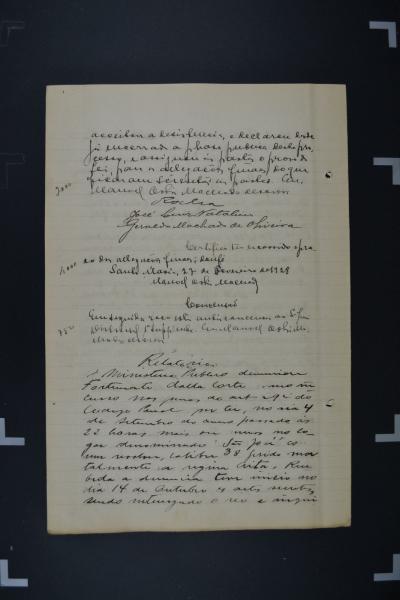 acceitou a desistencia, e declarou desde
já encerrada a phase deste pro
cesso, e assignou ás partes o praso da
lei, para as allegações finaes do que
ficaram scientes as partes. Eu,
Manoel Machado escrevi
7000
Rocha
José Luiz Natalino
Geraldo Machado de Oliveira
Certifico ter o
so das allegações finaes; dou fé
1000
Santa Maria, 27 de Fevereiro de 1928
Manoel Machado
Conclusão
Em seguida faço autos conclusos ao Sr.
Districtal Supplente. Eu, Manoel
Machado escrevi
750
Relatorio
O Ministerio Publico denunciou
Fortunato Dalla Corte como in
curso nas penas do art. 294 do
Codigo Penal por ter, no dia 4
de Setembro do anno passado ás
22 horas mais ou menos no lo-
gar denominado São José co
um revolver, calibre 38 ferido mor
talmente a Regina Rece
bida a denuncia teve inicio no
dia 14 de Outubro
sendo o reo e inqui